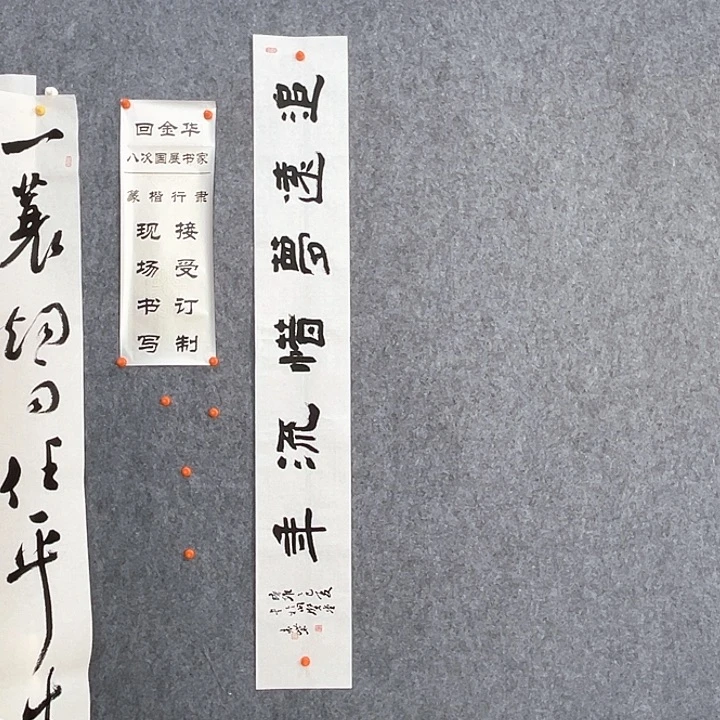 一蓑烟雨任平生
回金华
八次国展书家
篆楷行隶
现场书写
接受订制
追遠夢惜流年